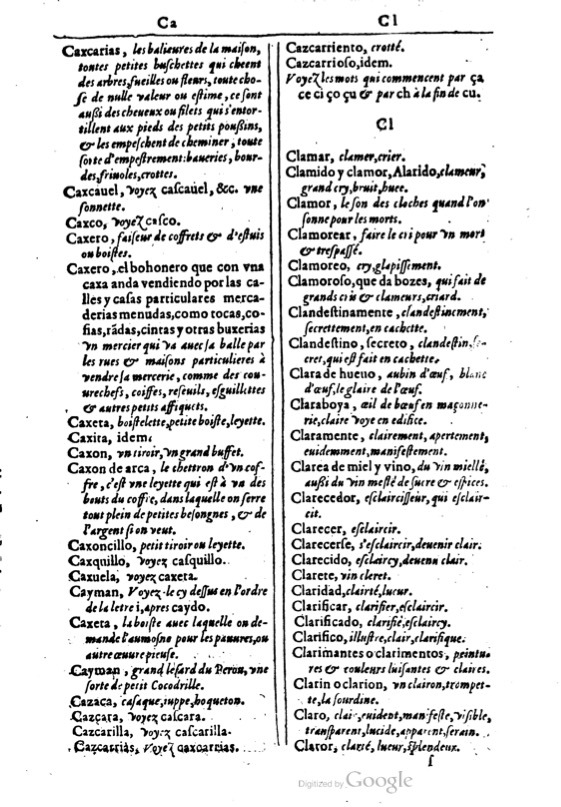 Ca
Caxcarias, les balieures de la maison,
toutes petites buschettes qui cheent
des arbres, fueilles ou fleurs, toute cho-
se de nulle valeur ou estime, ce sont
aussi des cheueux ou filets qui s'entor-
tillent aux pieds des petits poussins,
& les empeschent de cheminer, toute
sorte d'empestrement: baueries, bour-
des, friuoles, crottes.
Caxcauel, voyez cascauel, &c. vne
sonnette.
Caxco, voyez casco.
Caxero, faiseur de coffrets & d'estuis
ou boistes.
Caxero, el bohonero que con vna
caxa anda vendiendo por las ca-
lles y casas particulares merca-
derias menudas, como tocas, co-
fias, rãdas, cintas y otras buxerias
vn mercier qui va auec sa balle par
les rues & maisons particulieres à
vendre sa mercerie, comme des cou-
urechefs, coiffes, reseuils, esguillettes
& autres petits affiquets.
Caxeta, boistelette, petite boiste, leyette.
Caxita, idem.
Caxon, vn tiroir, vn grand buffet.
Caxon de arca, le chettron d'vn cof-
fre, c'est vne leyette qui est à va des
bouts du coffre, dans laquelle on serre
tout plein de petites besongnes, & de
l'argent si on veut.
Caxoncillo, petit tiroir ou leyette.
Caxquillo, voyez casquillo.
Caxuela, voyez caxeta.
Cayman, Voyez-le cy dessus en l'ordre
de la lettre i, apres caydo.
Caxeta, la boiste auec laquelle on de-
mande l'aumosne pour les pauures, ou
autre œuure pieuse.
Cayman, grand lesard du Perou, vne
sorte de petit Cocodrille.
Cazaca, casaque, iuppe, hoqueton.
Cazcara, voyez cascara.
Cazcarilla, voyez cascarilla.
Cazcarrias, Voyez caxcarrias.
Cl
Cazcarriento, crotté.
Cazcarrioso, idem.
Voyez les mots qui commencent par ça
ce ci ço çu & par ch à la fin de cu.
Cl
Clamar, clamer, crier.
Clamido y clamor, Alarido, clameur,
grand cry, bruit, huee.
Clamor, le son des cloches quand l'on
sonne pour les morts.
Clamorear, faire le cri pour vn mort
& trespassé.
Clamoreo, cry, glapissement.
Clamoroso, que da bozes, qui fait de
grands cris & clameurs, criard.
Clandestinamente, clandestinement,
secrettement, en cachette.
Clandestino, secreto, clandestin, se-
cret, qui est fait en cachette.
Clara de hueuo, aubin d'œuf, blanc
d'œuf, le glaire de l'œuf.
Claraboya, œil de bœuf en maçonne-
rie, claire voye en edifice.
Claramente, clairement, apertement,
euidemment, manifestement.
Clarea de miel y vino, du vin miellé,
aussi du vin meslé de sucre & espices.
Clarecedor, esclaircisseur, qui esclair-
cit.
Clarecer, esclaircir.
Clarecerse, s'esclaircir, deuenir clair.
Clarecido, esclaircy, deuenu clair.
Clarete, vin cleret.
Claridad, clairté, lueur.
Clarificar, clarifier, esclaircir.
Clarificado, clarifié, esclaircy.
Clarifico, illustre, clair, clarifique.
Clarimantes o clarimentos, peintu-
res & couleurs luisantes & claires.
Clarin o clarion, vn clairon, trompet-
te, la sourdine.
Claro, clair, euident, manifeste, visible,
transparent, lucide, apparent, serain.
Claror, clarté, lueur, splendeur.
s
Digitized by Google